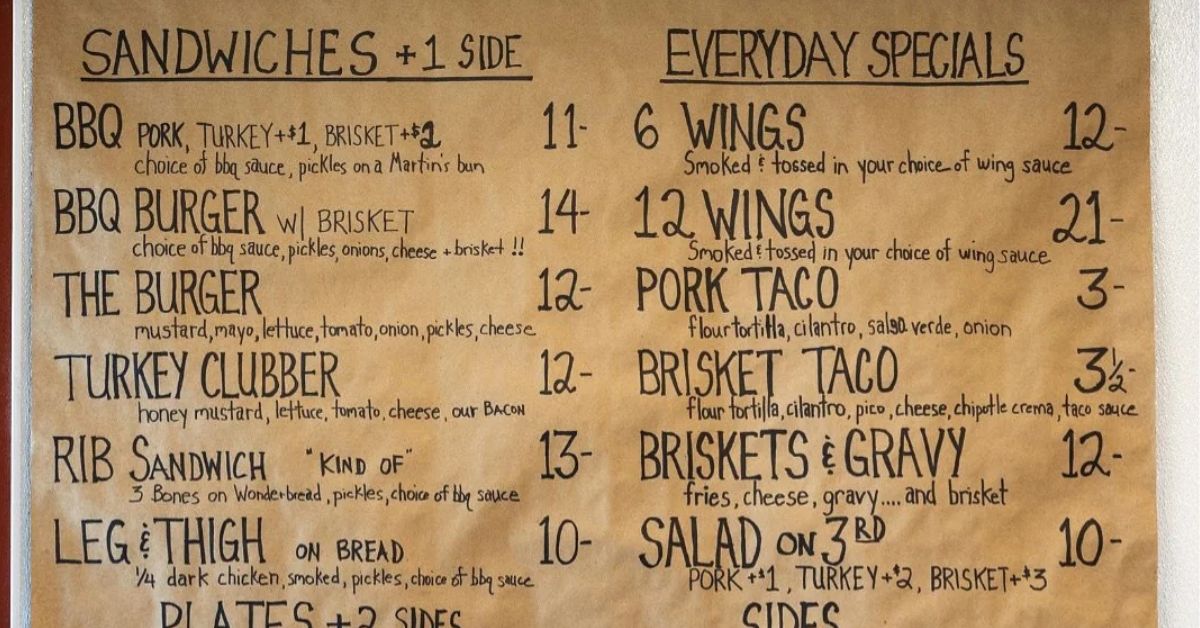 SANDWICHES +1 SIDE
BBQ PORK, TURKEY+$1, BRISKET+$2 11-
choice of bbq sauce, pickles on a Martin's bun
BBQ BURGER w/ BRISKET 14-
choice of bbq sauce, pickles, onions, cheese + brisket !!
THE BURGER 12-
mustard, mayo, lettuce, tomato, onion, pickles, cheese
TURKEY CLUBBER 12-
honey mustard, lettuce, tomato, cheese, our BACON
RIB SANDWICH "KIND OF" 13-
3 Bones on Wonderbread, pickles, choice of bbq sauce
LEG & THIGH ON BREAD 10-
1/4 dark chicken, smoked, pickles, choice of bbq sauce
PLATES +2 SIDES
EVERYDAY SPECIALS
6 WINGS 12-
Smoked & tossed in your choice of wing sauce
12 WINGS 21-
Smoked & tossed in your choice of wing sauce
PORK TACO 3-
flour tortilla, cilantro, salsa verde, onion
BRISKET TACO 3½-
flour tortilla, cilantro, pico, cheese, chipotle crema, taco sauce
BRISKETS & GRAVY 12-
fries, cheese, gravy.... and brisket
SALAD ON 3RD 10-
PORK +$1, TURKEY+$2, BRISKET+$3
SIDES